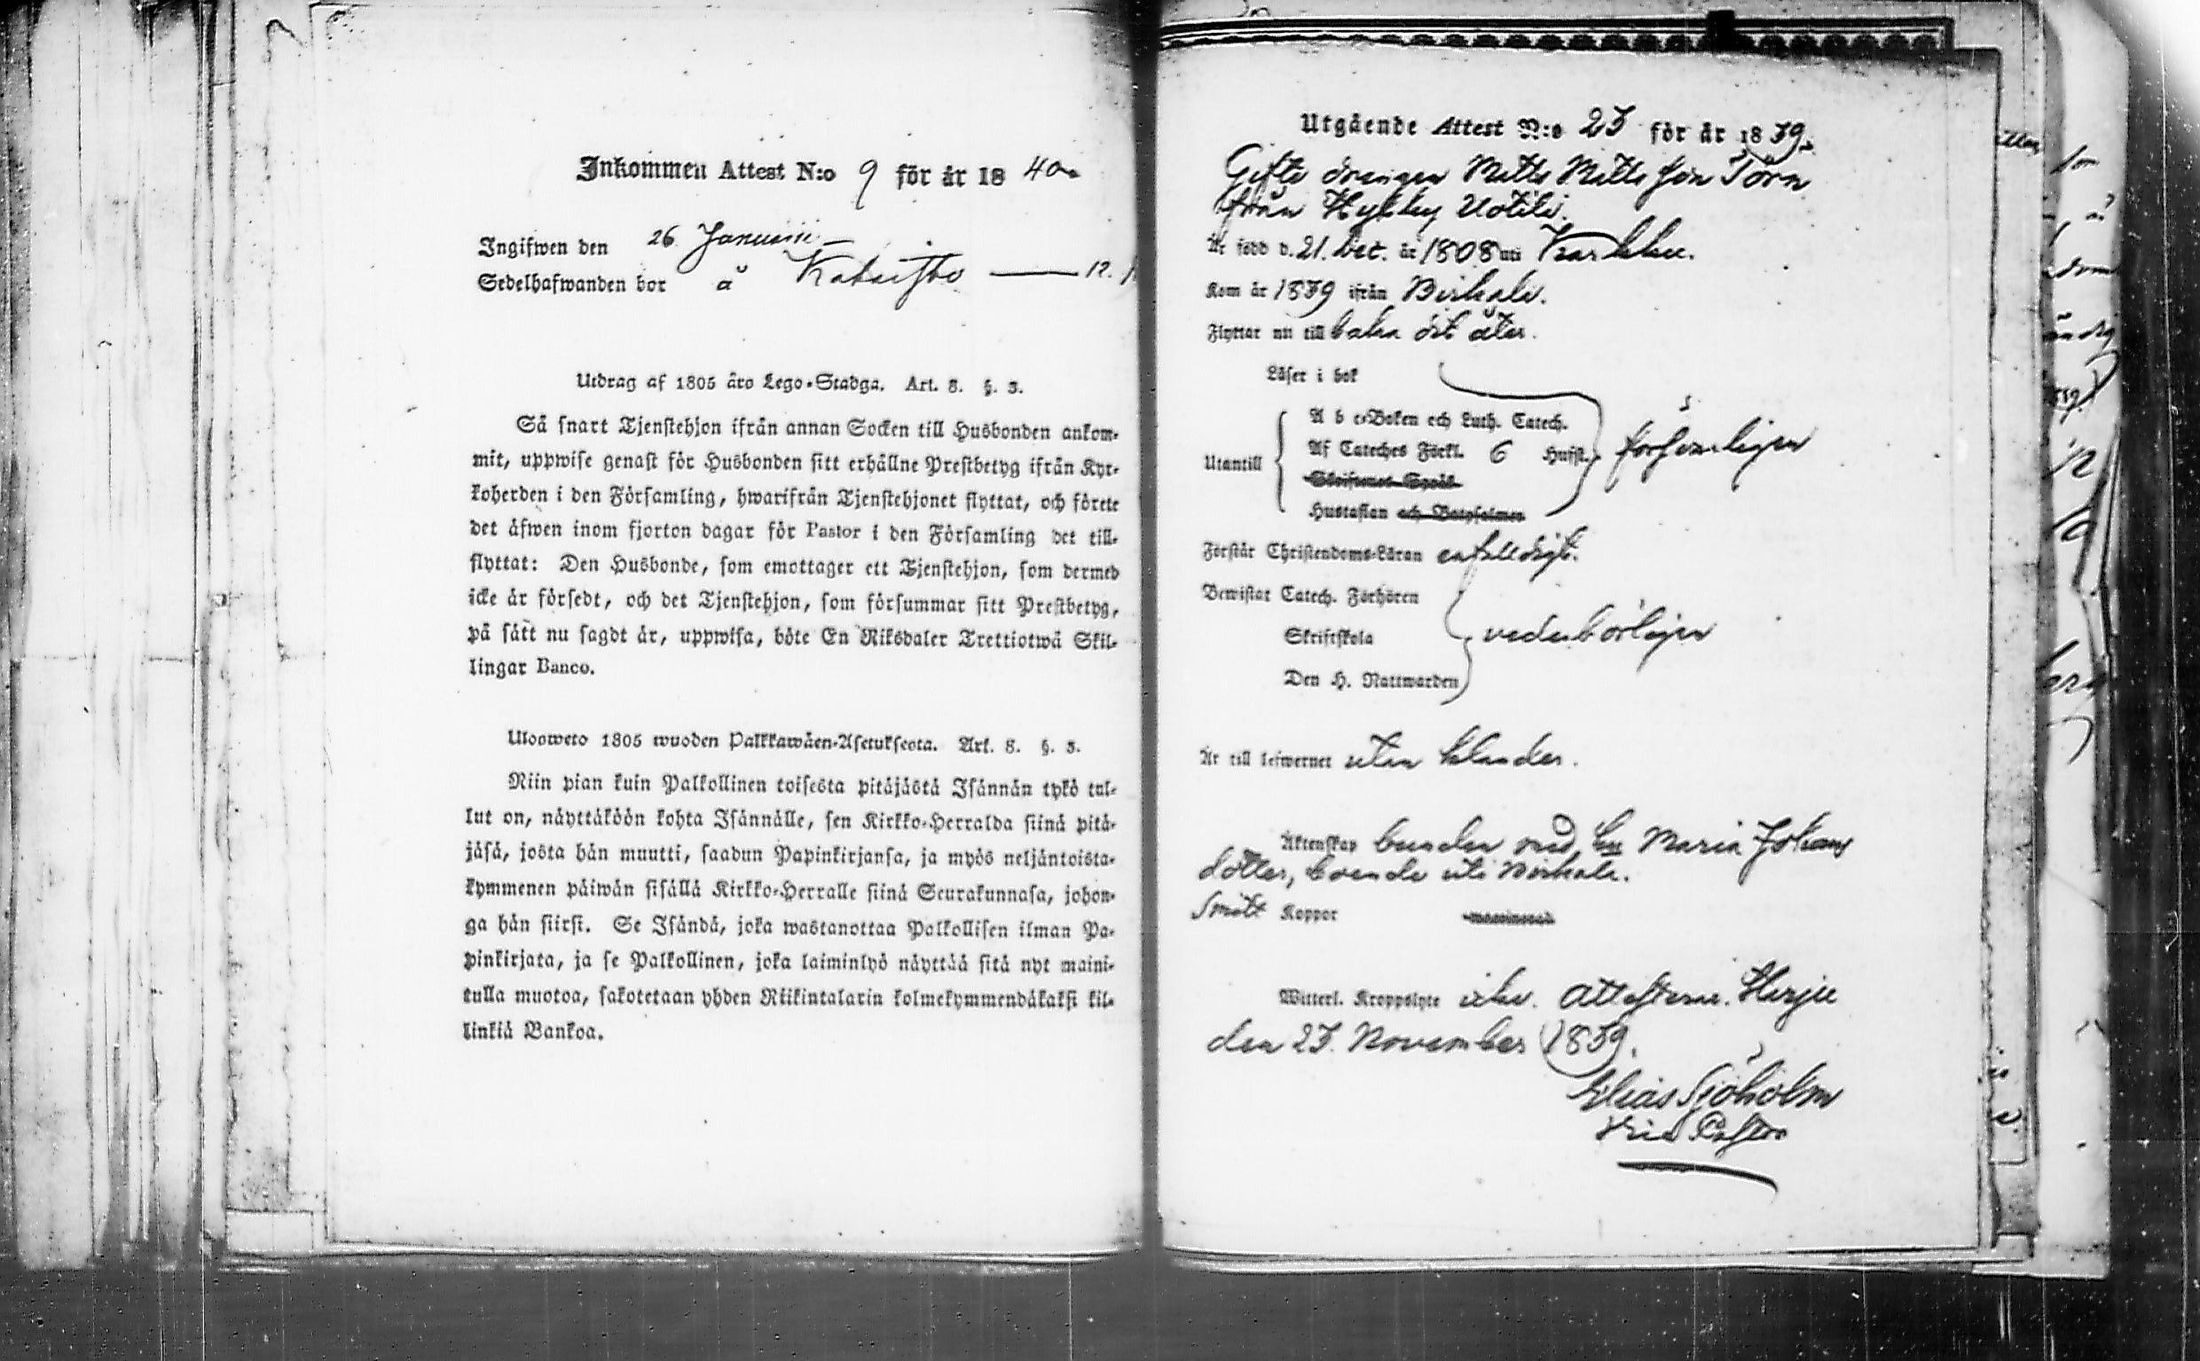 Inkommen Attest N:o 9 för år 18 40.
Ingifwen den 26 Januarii
Sedelhafwanden bor å
Utdrag af 1805 års Lego-Stadga. Art. 8. §. 3.
Så snart Tjenstehjon ifrån annan Socken till Husbonden ankom-
mit, uppwise genast för Husbonden sitt erhållne Prestbetyg ifrån Kyr-
koherden i den Församling, hwarifrån Tjenstehjonet flyttat, och förete
det åfwen inom fjorton dagar för Pastor i den Församling det till-
flyttat: Den Husbonde, som emottager ett Tjenstehjon, som dermed
icke är försedt, och det Tjenstehjon, som försummar sitt Prestbetyg,
på sätt nu sagdt är, uppwisa, böte En Riksdaler Trettiotwå Skil-
lingar Banco.
Ulosweto 1805 wuoden Palkkawäen-Asetuksesta. Art. 8. §. 3.
Niin pian kuin Palkollinen toisesta pitäjästä Isännän tykö tul-
lut on, näyttäköön kohta Isännälle, sen Kirkko-Herralda siinä pitä-
jäsä, josta hän muutti, saadun Papinkirjansa, ja myös neljäntoista-
kymmenen päiwän sisällä Kirkko-Herralle siinä Seurakunnasa, johon-
ga hän siirsi. Se Isändä, joka wastanottaa Palkollisen ilman Pa-
pinkirjata, ja se Palkollinen, joka laiminlyö näyttää sitä nyt maini-
tulla muotoa, sakotetaan yhden Riikintalarin kolmekymmendäkaksi kil-
linkiä Bankoa.
Utgående Attest N:o 23 för år 18 39.
Gifte drängen Matts Matts son Törn
från Hykky Uotila.
Är född d. 21. Dec. år 1808 uti Karkku.
Kom år 1839 ifrån Birkala.
Flyttar nu till baka dit åter.
Läser i bok
Utantill
A b c-Boken och Luth. Catech.
Af Cateches Förkl. 6 Hufst. försvarligen
Skriftenes Språk
Hustaflan och Botpsalmer
Förstår Christendoms-Läran enfaldigt.
Bewistat Catech. Förhören
Skriftskola vederbörligen
Den H. Nattwarden
Är till lefwernet utan klander.
Äktenskap bunden med hu Maria Johans
dotter, boende uti Birkala.
Smått Koppor vaccinerad
Witterl. Kroppslyte icke. Attesterar. Harju
den 23. November 1839.
Elias Sjöholm
Vice Pastor